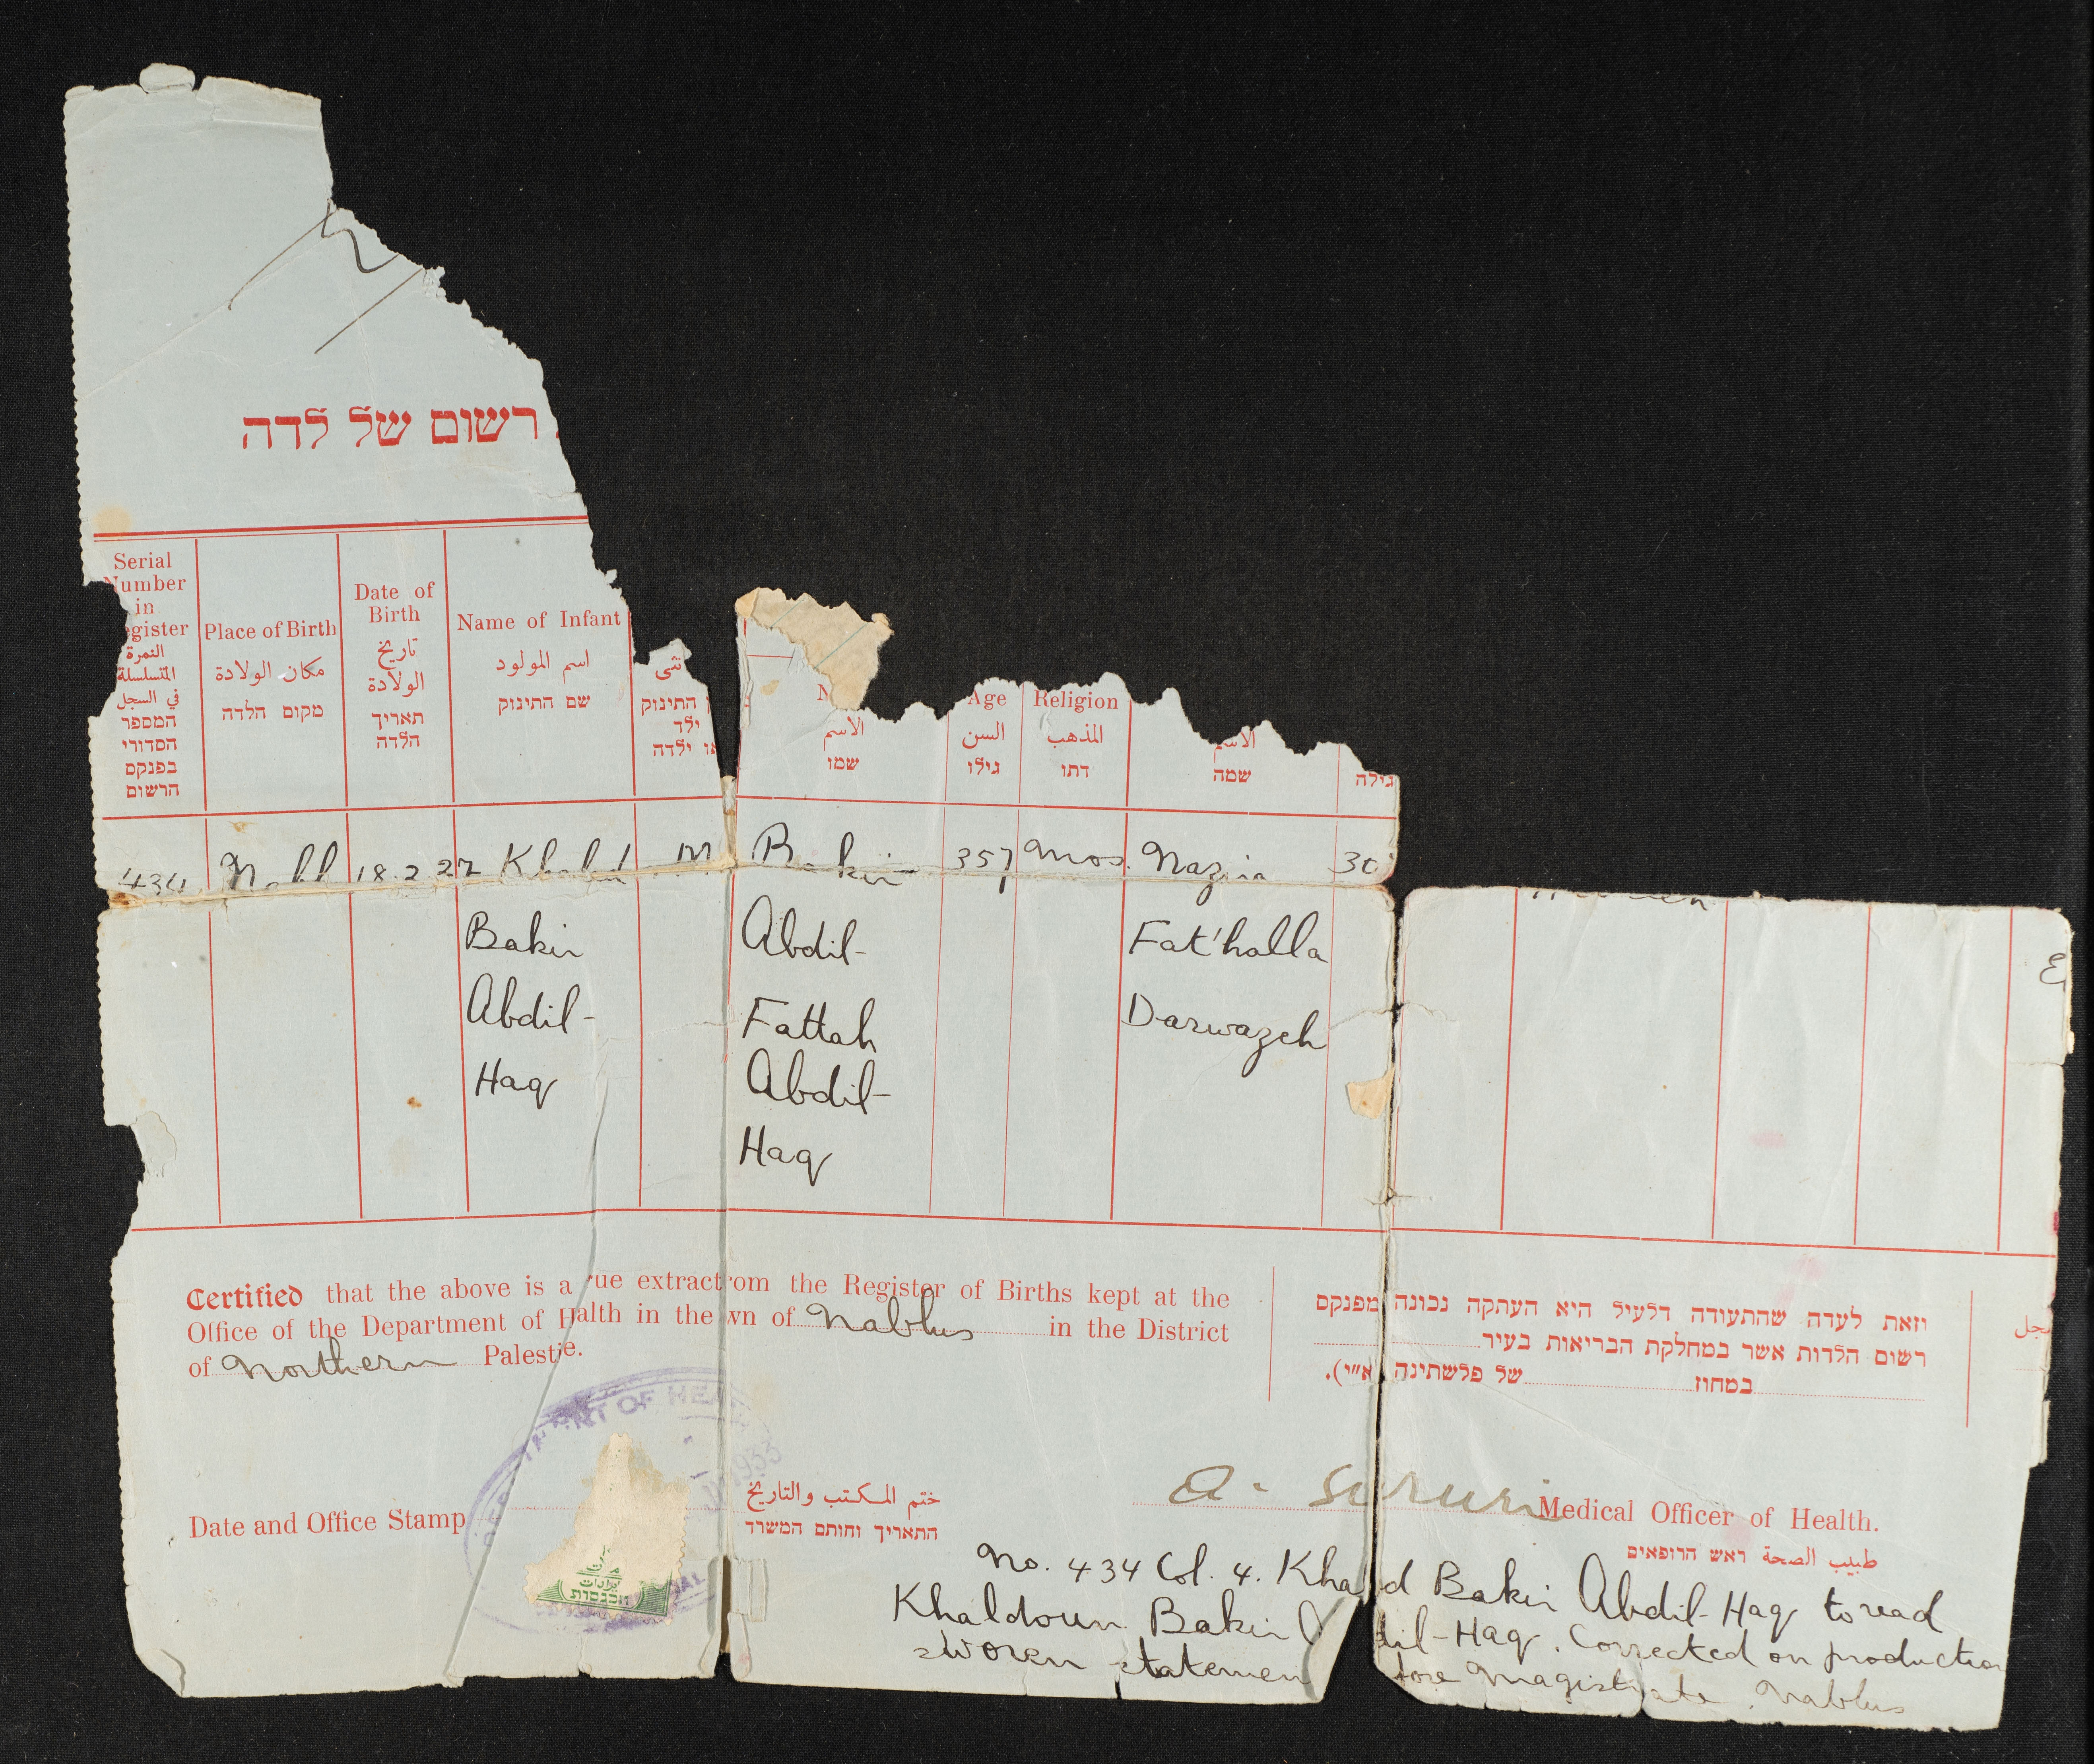 רשום של לדה
Serial
Number
in
Register
النمرة
المتسلسلة
في السجل
המספר
הסדורי
בפנקס
הרשום
Place of Birth
مكان الولادة
מקום הלדה
Date of
Birth
تاريخ
الولادة
תאריך
הלדה
Name of Infant
اسم المولود
שם התינוק
התינוק
ילד
או ילדה
الاسم
שמו
Age
السن
גילו
Religion
المذهب
דתו
الاسم
שמה
גילה
434 18.2.27 M Bakir 35 Mos. Nazira 30
Bakir Abdil- Fat'halla
Abdil- Fattah Darwazeh
Haq Abdil-
Haq
Certified that the above is a rue extract rom the Register of Births kept at the
Office of the Department of Halth in the wn of Nablus in the District
of Northern Palestie.
וזאת לעדה שהתעודה דלעיל היא העתקה נכונה מפנקס
רשום הלדות אשר במחלקת הבריאות בעיר
במחוז של פלשתינה (א״י).
سجل
OF HEA
1933
Date and Office Stamp
ختم المكتب والتاريخ
התאריך וחותם המשרד
ايرادات
הכנסות
a. Sururi Medical Officer of Health.
طبيب الصحة ראש הרופאים
No. 434 Col. 4. Kha d Bakir Abdil-Haq to read
Khaldoun Bakir dil-Haq. Corrected on production
sworen statemen fore Magistrate. Nablus